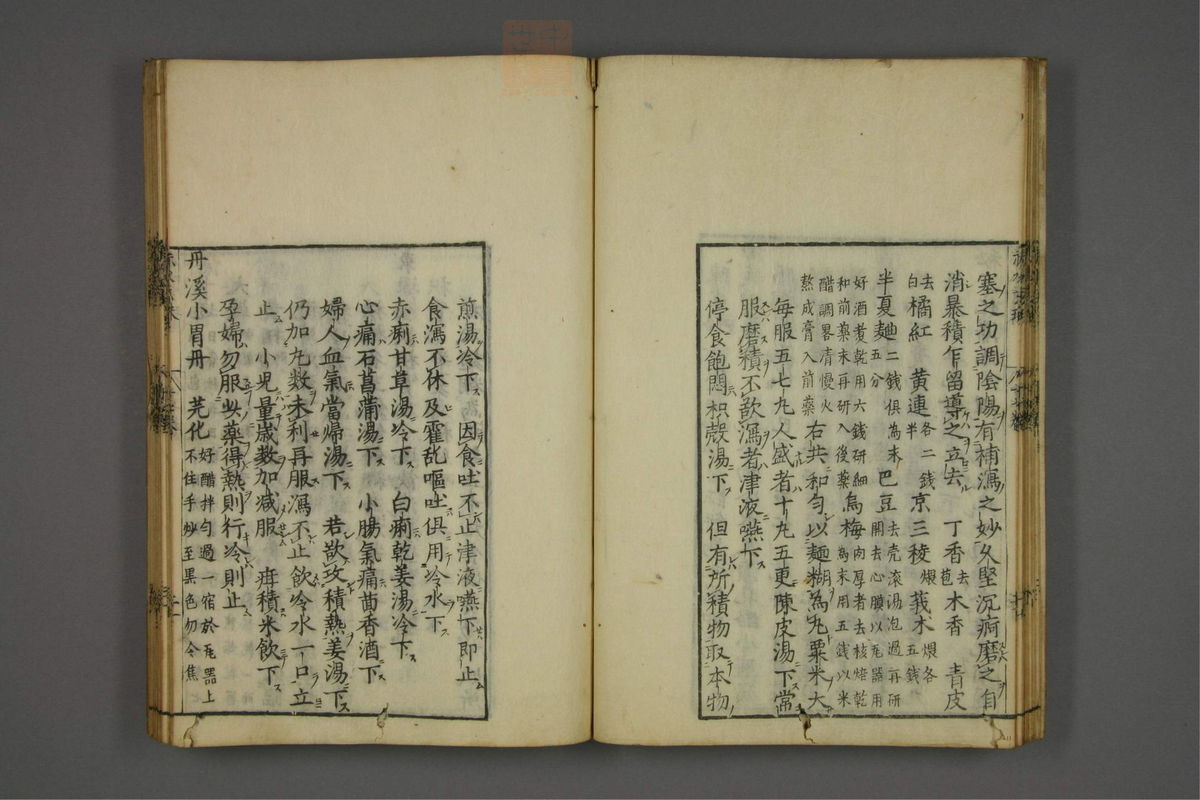 塞之功調陰陽有補瀉之妙久堅沉痾磨之自
消暴積乍留導之立去　丁香去苞木香　青皮
去白橘紅　黄連各二錢半京三稜煨莪术煨各五錢
半夏麯二錢五分俱為末　巴豆去壳滚湯泡過再研開去心膜以瓦器用
好酒煑乾用六錢研細和前薬末再研入後薬烏梅肉厚者去核焙乾為末用五錢以米
醋調畧清慢火熬成膏入前薬右共和勻以麺糊為丸粟米大
毎服五七丸人盛者十丸五更陳皮湯下常
服磨積不欲瀉者津液嚥下
停食飽悶枳殼湯下　但有所積物取本物
煎湯冷下　因食吐不止津液嚥下即止
食瀉不休及霍乱嘔吐俱用冷水下
赤痢甘草湯冷下　白痢乾姜湯冷下
心痛石菖蒲湯下　小腸氣痛茴香酒下
婦人血氣當帰湯下　若欲攻積熱姜湯下
仍加丸数未利再服瀉不止飲冷水一口立
止　小児量歳数加減服　疳積米飲下
孕婦勿服此薬得熱則行冷則止
丹溪小胃丹　芫花好醋拌勻過一宿於瓦器上不住手炒至黒色勿令焦